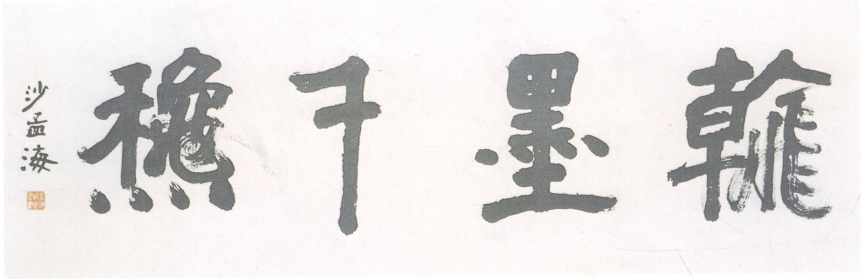 翰墨千龝
沙孟海